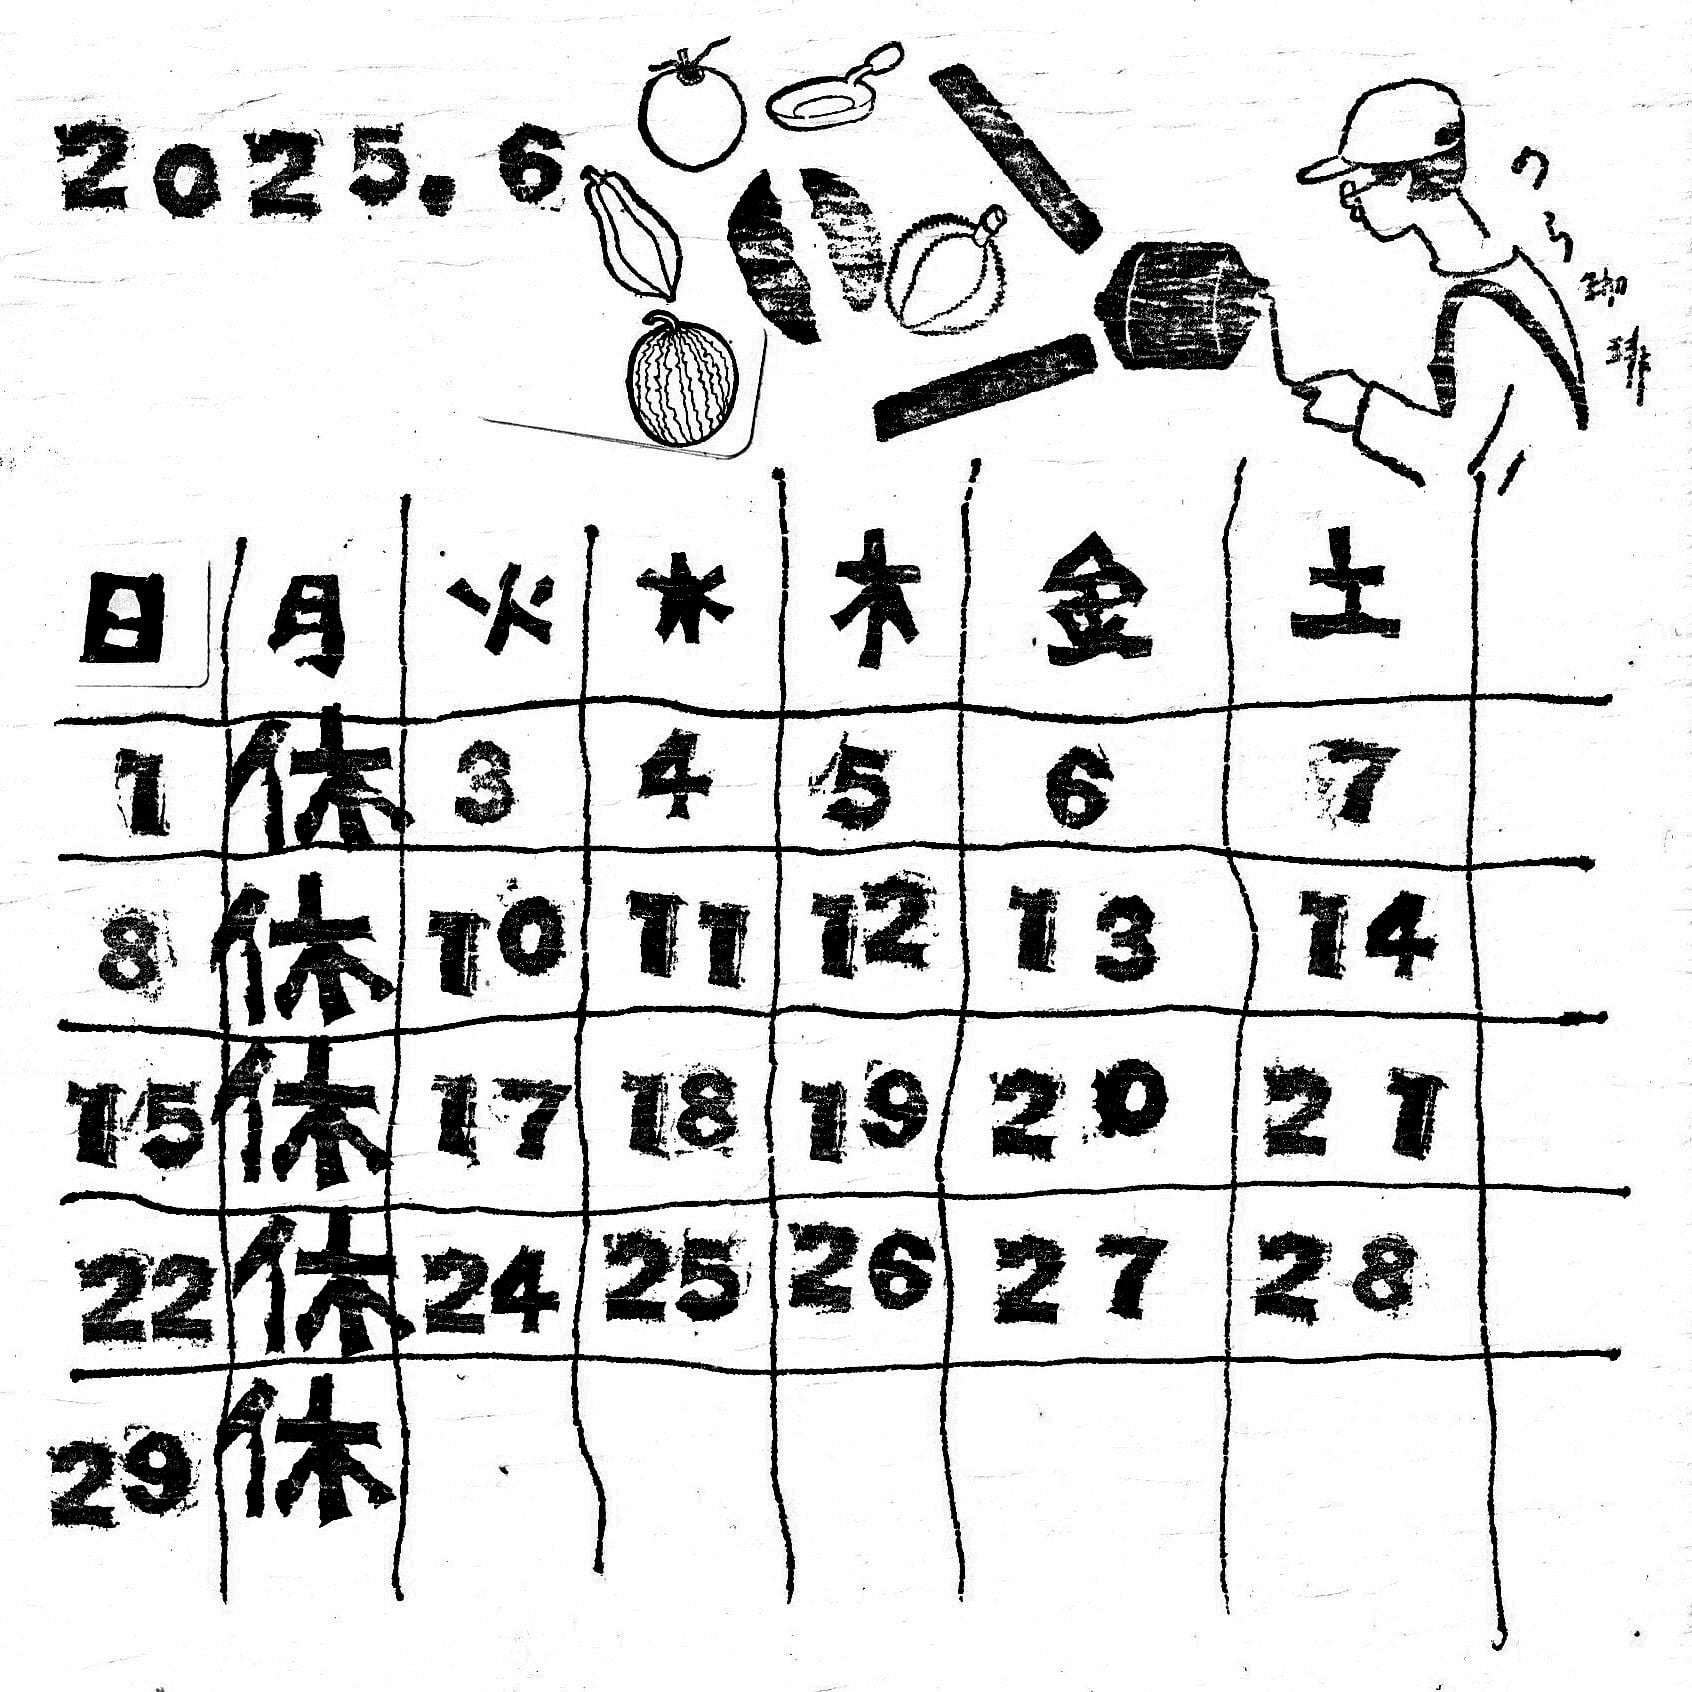 2025.6
クラ珈琲
日 月 火 水 木 金 土
1 休 3 4 5 6 7
8 休 10 11 12 13 14
15 休 17 18 19 20 21
22 休 24 25 26 27 28
29 休